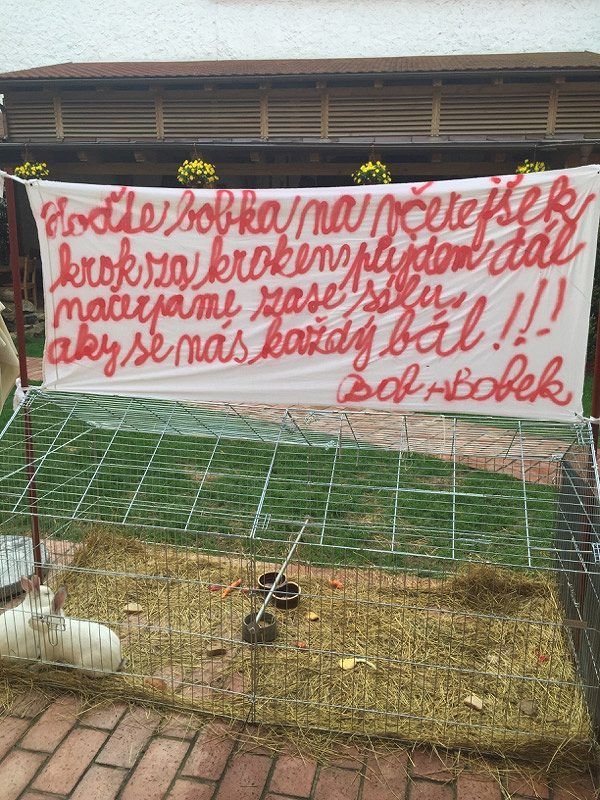 Hoďte bobka na včerejšek,
krok za krokem půjdem dál
načerpáme zase sílu,
aby se nás každý bál!!!
Bob + Bobek